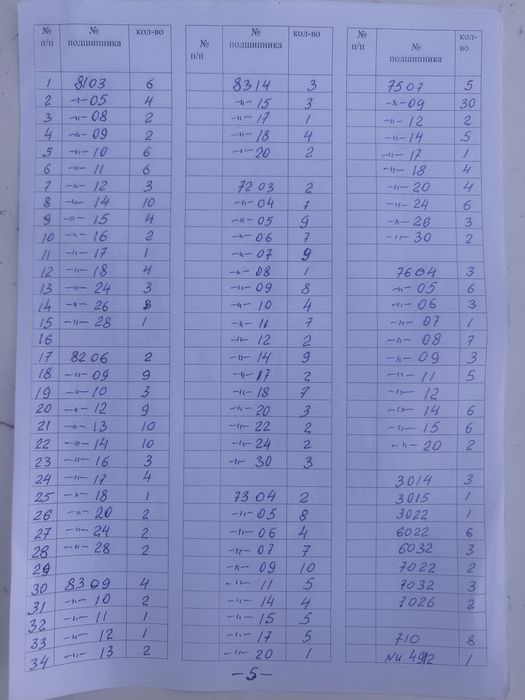 № п/п № подшипника кол-во
1 8103 6
2 -"- 05 4
3 -"- 08 2
4 -"- 09 2
5 -"- 10 6
6 -"- 11 6
7 -"- 12 3
8 -"- 14 10
9 -"- 15 4
10 -"- 16 2
11 -"- 17 1
12 -"- 18 4
13 -"- 24 3
14 -"- 26 8
15 -"- 28 1
16
17 8206 2
18 -"- 09 9
19 -"- 10 3
20 -"- 12 9
21 -"- 13 10
22 -"- 14 10
23 -"- 16 3
24 -"- 17 4
25 -"- 18 1
26 -"- 20 2
27 -"- 24 2
28 -"- 28 2
29
30 8309 4
31 -"- 10 2
32 -"- 11 1
33 -"- 12 1
34 -"- 13 2
№ п/п № подшипника кол-во
8314 3
-"- 15 3
-"- 17 1
-"- 18 4
-"- 20 2
7203 2
-"- 04 7
-"- 05 9
-"- 06 7
-"- 07 9
-"- 08 1
-"- 09 8
-"- 10 4
-"- 11 7
-"- 12 2
-"- 14 9
-"- 17 2
-"- 18 7
-"- 20 3
-"- 22 2
-"- 24 2
-"- 30 3
7304 2
-"- 05 8
-"- 06 4
-"- 07 7
-"- 09 10
-"- 11 5
-"- 14 4
-"- 15 5
-"- 17 5
-"- 20 1
№ п/п № подшипника кол-во
7507 5
-"- 09 30
-"- 12 2
-"- 14 5
-"- 17 1
-"- 18 4
-"- 20 4
-"- 24 6
-"- 26 3
-"- 30 2
7604 3
-"- 05 6
-"- 06 3
-"- 07 1
-"- 08 7
-"- 09 3
-"- 11 5
-"- 12
-"- 14 6
-"- 15 6
-"- 20 2
3014 3
3015 1
3022 1
6022 6
6032 3
7022 2
7032 3
7026 2
710 8
1
-5-